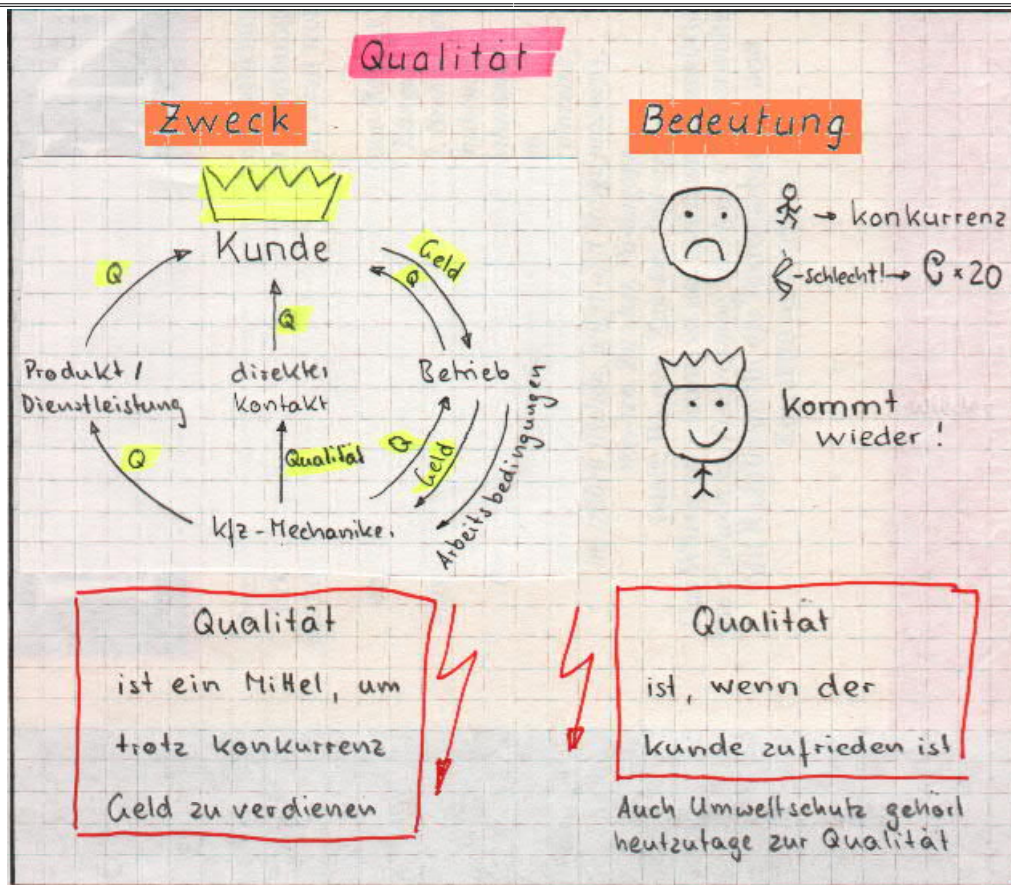 Qualität
Zweck
Kunde
Q
Q
Geld
Q
Produkt /
Dienstleistung
direkter
Kontakt
Betrieb
Q
Qualität
Q
Geld
Arbeitsbedingungen
Kfz-Mechaniker
Qualität
ist ein Mittel, um
trotz Konkurrenz
Geld zu verdienen
Bedeutung
→ Konkurrenz
-schlecht! → × 20
kommt
wieder!
Qualität
ist, wenn der
Kunde zufrieden ist
Auch Umweltschutz gehört
heutzutage zur Qualität